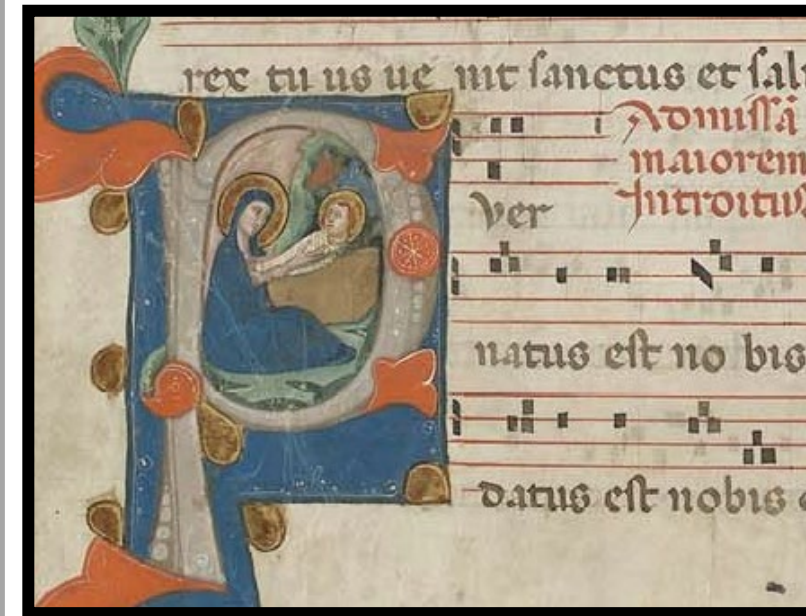 rex tu us ue nit sanctus et sal
Ad missã
maiorem
Introitus
P
ver
natus est no bis
datus est nobis